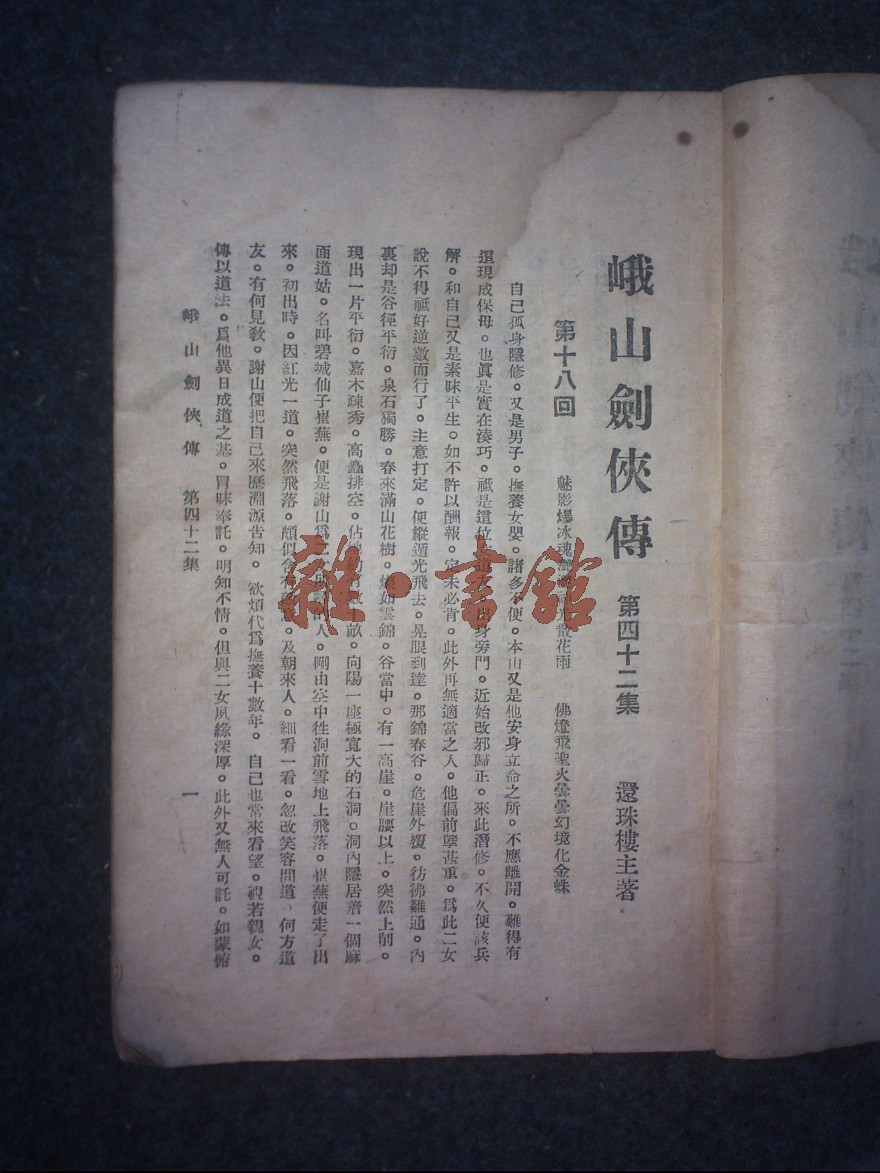 峨山劍俠傳 第四十二集 還珠樓主著
第十八回 魅影爆冰魂 光散花雨 佛燈飛聖火曇曇幻境化金蛛
自己孤身隱修。又是男子。撫養女嬰。諸多不便。本山又是他安身立命之所。不應離開。難得有
還現成保母。也眞是實在湊巧。祗是這位 道友 出身旁門。近始改邪歸正。來此潛修。不久便該兵
解。和自己又是素昧平生。如不許以酬報。定未必肯。此外再無適當之人。他偏前孽甚重。爲此二女
說不得祗好逆數而行了。主意打定。便縱遁光飛去。晃眼到達。那錦春谷。危崖外覆。彷彿難通。內
裏却是谷徑平衍。泉石獨勝。春來滿山花樹。燦如雲錦。谷當中。有一高崖。崖腰以上。突然上削。
現出一片平衍。嘉木疎秀。高矗排空。佔地約有數十畝。向陽一座極寬大的石洞。洞內隱居着一個麻
面道姑。名叫碧城仙子崔蕪。便是謝山爲 的人。剛由空中往洞前雪地上飛落。崔蕪便走了出
來。初出時。因紅光一道。突然飛落。頗似含有 意。及朝來人。細看一看。忽改笑容問道。何方道
友。有何見敎。謝山便把自己來歷淵源告知。欲煩代爲撫養十數年。自己也當來看望。視若親女。
傳以道法。爲他異日成道之基。冒昧奉託。明知不情。但與二女夙緣深厚。此外又無人可託。如蒙俯
峨山劍俠傳 第四十二集 一
雜·書館